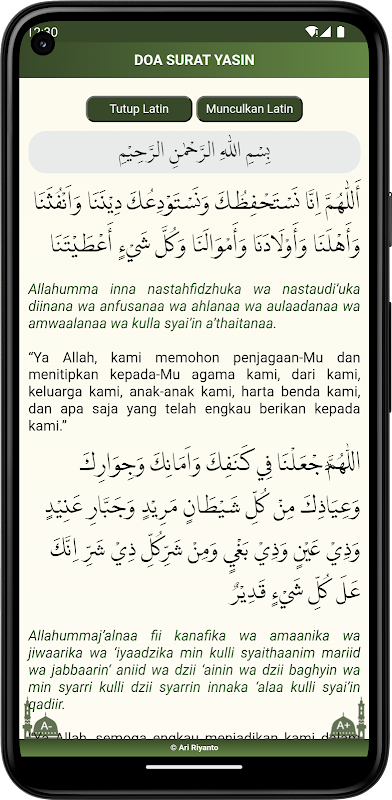 12:30
DOA SURAT YASIN
Tutup Latin
Munculkan Latin
بِسْمِ اللهِ الرَّحْمٰنِ الرَّحِيْمِ
أَللّٰهُمَّ اِنَّا نَسْتَحْفِظُكَ وَنَسْتَوْدِعُكَ دِيْنَنَا وَاَنْفُثَنَا
وَأَهْلَنَا وَأَوْلَادَنَا وَأَمْوَالَنَا وَكُلَّ شَيْءٍ أَعْطَيْتَنَا
Allahumma inna nastahfidzhuka wa nastaudi'uka
diinana wa anfusanaa wa ahlanaa wa aulaadanaa wa
amwaalanaa wa kulla syai'in a'thaitanaa.
“Ya Allah, kami memohon penjagaan-Mu dan
menitipkan kepada-Mu agama kami, dari kami,
keluarga kami, anak-anak kami, harta benda kami,
dan apa saja yang telah engkau berikan kepada
kami.”
اللّٰهُمَّ جْعَلْنَا فِي كَنَفِكَ وَاَمَانَِكَ وَجِوَارِكَ
وَعِيَاذِكَ مِنْ كُلِّ شَيْطَانٍ مَرِيْدٍ وَجَبَّارٍ عَنِيْدٍ
وَذِيْ عَيْنٍ وَذِيْ بَغْيٍ وَمِنْ شَرِّكُلِّ ذِيْ شَرٍّ اِنَّكَ
عَلَ كُلِّ شَيْءٍ قَدِيْرٌ
Allahummaj'alnaa fii kanafika wa amaanika wa
jiwaarika wa 'iyaadzika min kulli syaithaanim mariid
wa jabbaarin' aniid wa dzii 'ainin wa dzii baghyin wa
min syarri kulli dzii syarrin innaka 'alaa kulli syai'in
qadiir.
“Ya Allah, semoga engkau menjadikan kami dalam
A-
A+
© Ari Riyanto